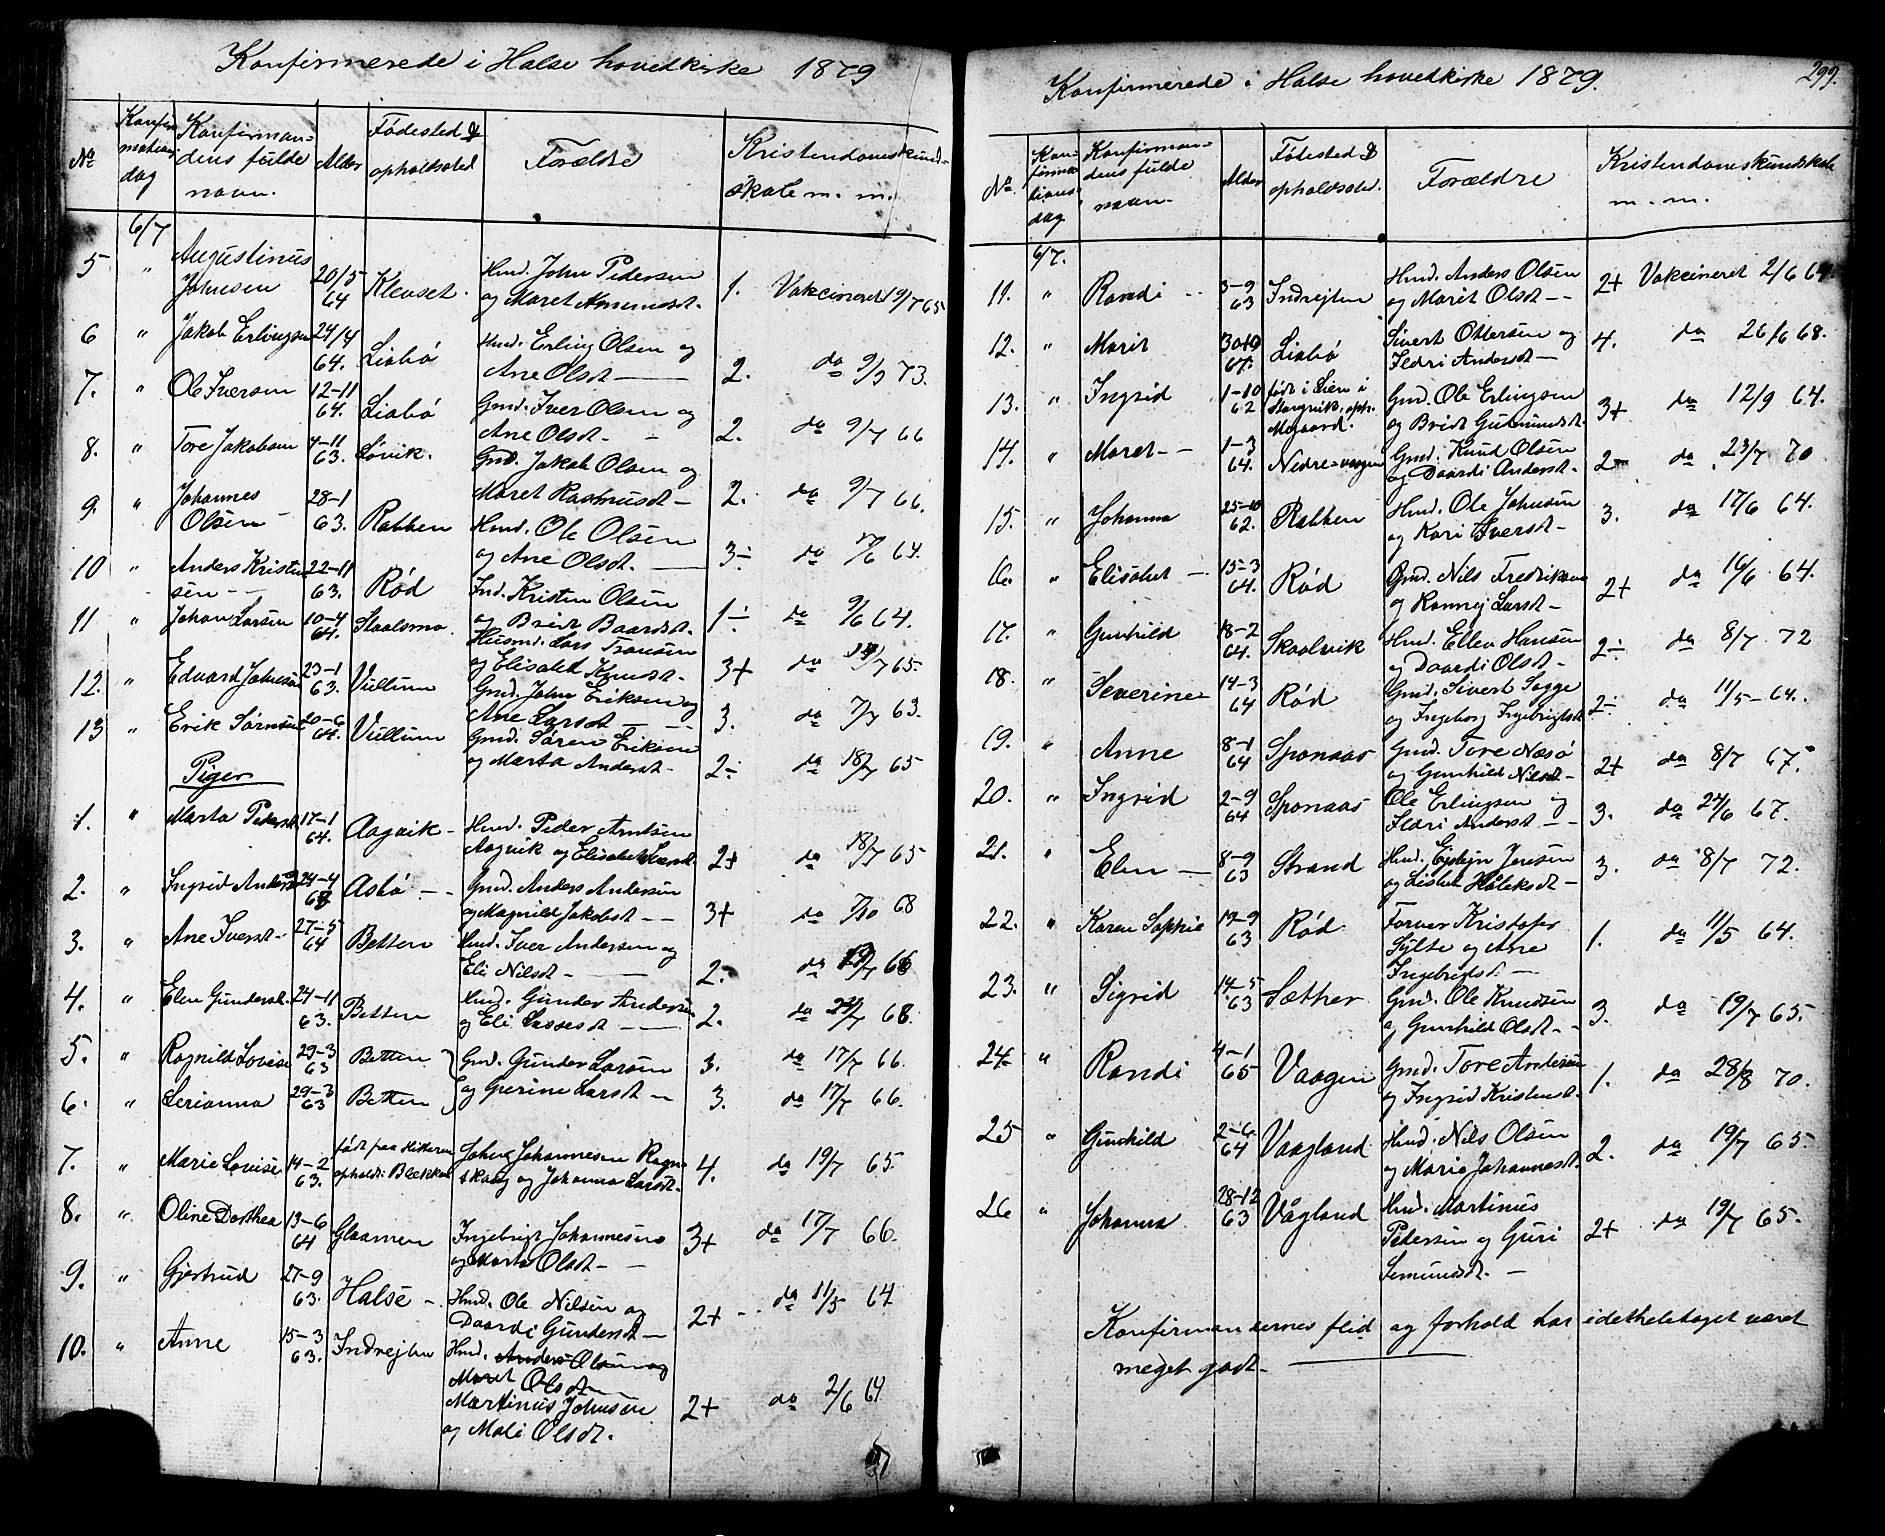 Konfirmerede i Halse hovedkirke 1879
No
Konfir
mations
dag
Konfirman-
dens fulde
navn.
Alder
Fødested &
opholdssted
Forældre
Kristendomskund-
skab m. m.
6/7
5 " Augustinus Johnsen 20/5 64 Klevset. Hmd. John Pedersen og Maret Amundsdt. 1. Vakcineret 19/7 65
6 " Jakob Erlingsen 24/4 64. Liabø Hmd. Erling Olsen og Ane Olsdt — 2. do 9/9 73.
7. " Ole Iversen 12-11 64. Liabø Gmd. Iver Olsen og Ane Olsdt. - 2. do 9/7 66
8. " Tore Jakobsen 4-11 63. Løvik. Gmd. Jakob Olsen og Maret Rasmusdt - 2. do 9/7 66.
9. " Johannes Olsen 28-1 63. Rabben Hmd. Ole Olsen og Ane Olsdt. — 3÷ do 17/6 64.
10 " Anders Kristensen 22-11 63. Rød Ind. Kristen Olsen og Brit Baardsdt. 1÷ do 9/6 64.
11 " Johan Larsen 10-4 64. Staalsmo. Husmd. Lars Tronsen og Elisabet Knudsdt. 3+ do /7 65
12. " Edvard Johnsen 23-1 63. Vullum Gmd. John Eriksen og Ane Larsdt — 3. do 7/7 63.
13 " Erik Sørnsen 20-6 64. Vullum Gmd. Søren Eriksen og Marta Andersdt. 2÷ do 18/7 65
Piger
1. " Marta Pedersdt 17-1 64. Aagvik - Hmd. Peder Arntsen Aagvik og Elisabet Larsdt. 2+ do 18/7 65
2. " Ingrid Andersdt 24-4 Asbø - - Gmd. Anders Andersen og Magnild Jakobsdt - - 3+ do 7/10 68
3. " Ane Iversdt - 27-5 64 Betten Hmd. Iver Andersen og Eli Nilsdt - 2. do /7 66
4. " Elen Gundersdt. 24-11 63. Betten Hmd. Gunder Andersen og Eli Lassesdt — 2. do /7 68.
5. " Ragnild Lovise 29-3 63 Betten Gmd. Gunder Larsen 3. do 17/7 66.
6. " Serianna 29-3 63 Betten og Gjerine Larsdt - 3. do 17/7 66.
7. " Marie Lovise 14-2 63. født paa Hitteren ophold: Blekken Johan Johannesen Ragn- skaug og Johanna Larsdt. 4. do 19/7 65.
8. " Oline Dorthea 13-6 64 Glaamen Ingebrigt Johannesen og Marta Olsdt - 3+ do 17/7 66.
9. " Gjertrud 27-9 63. Halse - Hmd. Ole Nilsen og Daardi Gundersdt — 2+ - do 11/5 64
10. " Anne 15-3 63. Indrejten Hmd. Anders Olsen og Maret Olsdt Martinus Johnsen og Mali Olsdt. 2+ do 2/6 64
Konfirmerede i Halse hovedkirke 1879.
299.
No.
Kon-
firma-
tions
dag
Konfirman-
dens fulde
navn.
Alder
Fødested &
opholdssted.
Forældre
Kristendomskundskab
m. m.
6/7.
11. " Randi - - 3-9 63 Indrejten Hmd. Anders Olsen og Marit Olsdt - - 2+ Vakcineret 2/6 64.
12. " Marit 30-9 64. Liabø Sivert Ottersen og Ildri Andersdt - 4. do 26/6 68.
13. " Ingrid 1-10 62 født i Lien i Stangvik, oph. Mogaard. Gmd. Ole Erlingsen og Brit Gudmundsdt. 3+ do 12/9 64.
14. " Maret - - 1-3 64. Nedre-vaagen Gmd. Knud Olsen og Daardi Andersdt. 2- do 23/7 70
15. " Johanna 25-10 62. Rabben Hmd. Ole Johnsen og Kari Iversdt - 3. do 17/6 64.
16. " Elisabet - 15-3 64. Rød Gmd. Nils Fredriksen og Rannej Larsdt - 2+ do 16/6 64.
17. " Gunhild 18-2 64. Skaalvik Hmd. Ellev Hansen og Daardi Olsdt - 2÷ do 8/7 72
18. " Severine 14-3 64 Rød Gmd. Sivert Sogge og Ingeborg Ingebrigtsdt 2÷ do 11/5 - 64.
19. " Anne 8-1 64 Sponaas Gmd. Tore Næsø og Gunhild Nilsdt - 2+ do 8/7 67.
20. " Ingrid 2-9 64 Sponaas Ole Erlingsen og Ildri Andersdt - - 3. do 24/6 67.
21. " Elen — 8-9 63 Strand Hmd. Ejstejn Jensen og Lisbet Haleksdt - 3. do 8/7 72.
22. " Karen Sophie 19-9 63 Rød Forver Kristofer Sylte og Ane Ingebrigtsdt. - 1. do 11/5 64.
23. " Sigrid 14-5 63 Sæther Gmd. Ole Knudsen og Gunhild Olsdt - - 3. do 19/7 65.
24 " Randi 4-1 65 Vaagen Gmd. Tore Andersen og Ingrid Kristensdt. 1. do 28/8 70.
25 " Gunhild 2-6 64 Vaagland Hmd. Nils Olsen og Marie Johannesdt. 2. do 19/7 65
26 " Johanna 28-12 63 Vågland Hmd. Martinus Pedersen og Guri Semundsdt. - 2+ do 19/7 65.
Konfirmandernes flid og forhold har i detheletaget været
meget godt. -